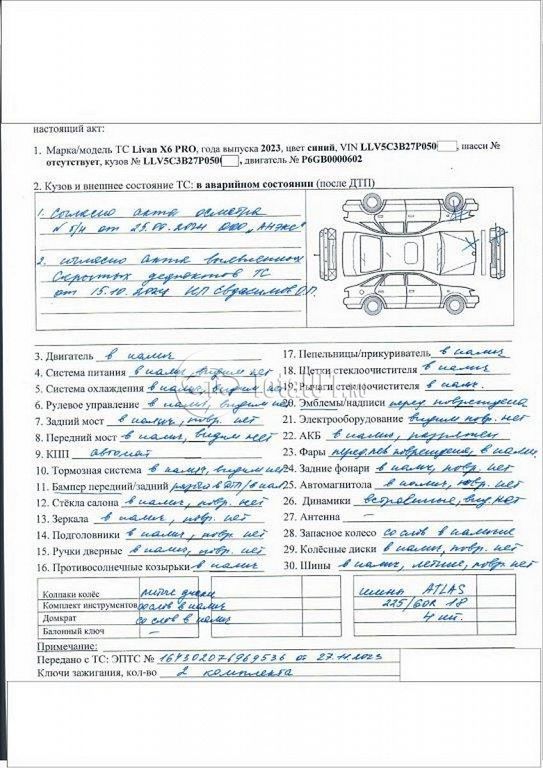 настоящий акт:
1. Марка/модель ТС Livan X6 PRO, года выпуска 2023, цвет синий, VIN LLV5C3B27P050 , шасси №
отсутствует, кузов № LLV5C3B27P050 , двигатель № P6GB0000602
2. Кузов и внешнее состояние ТС: в аварийном состоянии (после ДТП)
1. Согласно акта осмотра
N б/н от 25.09.2024 ООО „АНЭКС"
2. согласно акта выявленных
скрытых деффектов ТС
от 15.10.2024 ИП Евдасимов О.П.
3. Двигатель в налич
4. Система питания в налич, видим нет
5. Система охлаждения в налич, видим нет
6. Рулевое управление в налич, видим нет
7. Задний мост в налич, повр. нет
8. Передний мост в налич, видим нет
9. КПП автомат
10. Тормозная система в налич, видим нет
11. Бампер передний/задний в ДТП/в нал
12. Стёкла салона в налич, повр. нет
13. Зеркала в налич, повр. нет
14. Подголовники в налич, повр. нет
15. Ручки дверные в налич, повр. нет
16. Противосолнечные козырьки в налич
17. Пепельницы/прикуриватель в налич
18. Щетки стеклоочистителя в налич
19. Рычаги стеклоочистителя в налич.
20. Эмблемы/надписи перед повреждена
21. Электрооборудование видим повр. нет
22. АКБ в налич, разряжен
23. Фары перед лев повреждена, в налич.
24. Задние фонари в налич, повр. нет
25. Автомагнитола в налич, повр. нет
26. Динамики встроенные, вид нет
27. Антенна –
28. Запасное колесо со слов в наличие
29. Колёсные диски в налич, повр. нет
30. Шины в налич, летние, повр. нет
Колпаки колёс литые диски
Комплект инструментов со слов в налич
Домкрат со слов в налич
Балонный ключ –
шины ATLAS
225/60R 18
4 шт.
Примечание:
Передано с ТС: ЭПТС № 164302076969536 от 27.11.2023
Ключи зажигания, кол-во 2 комплекта